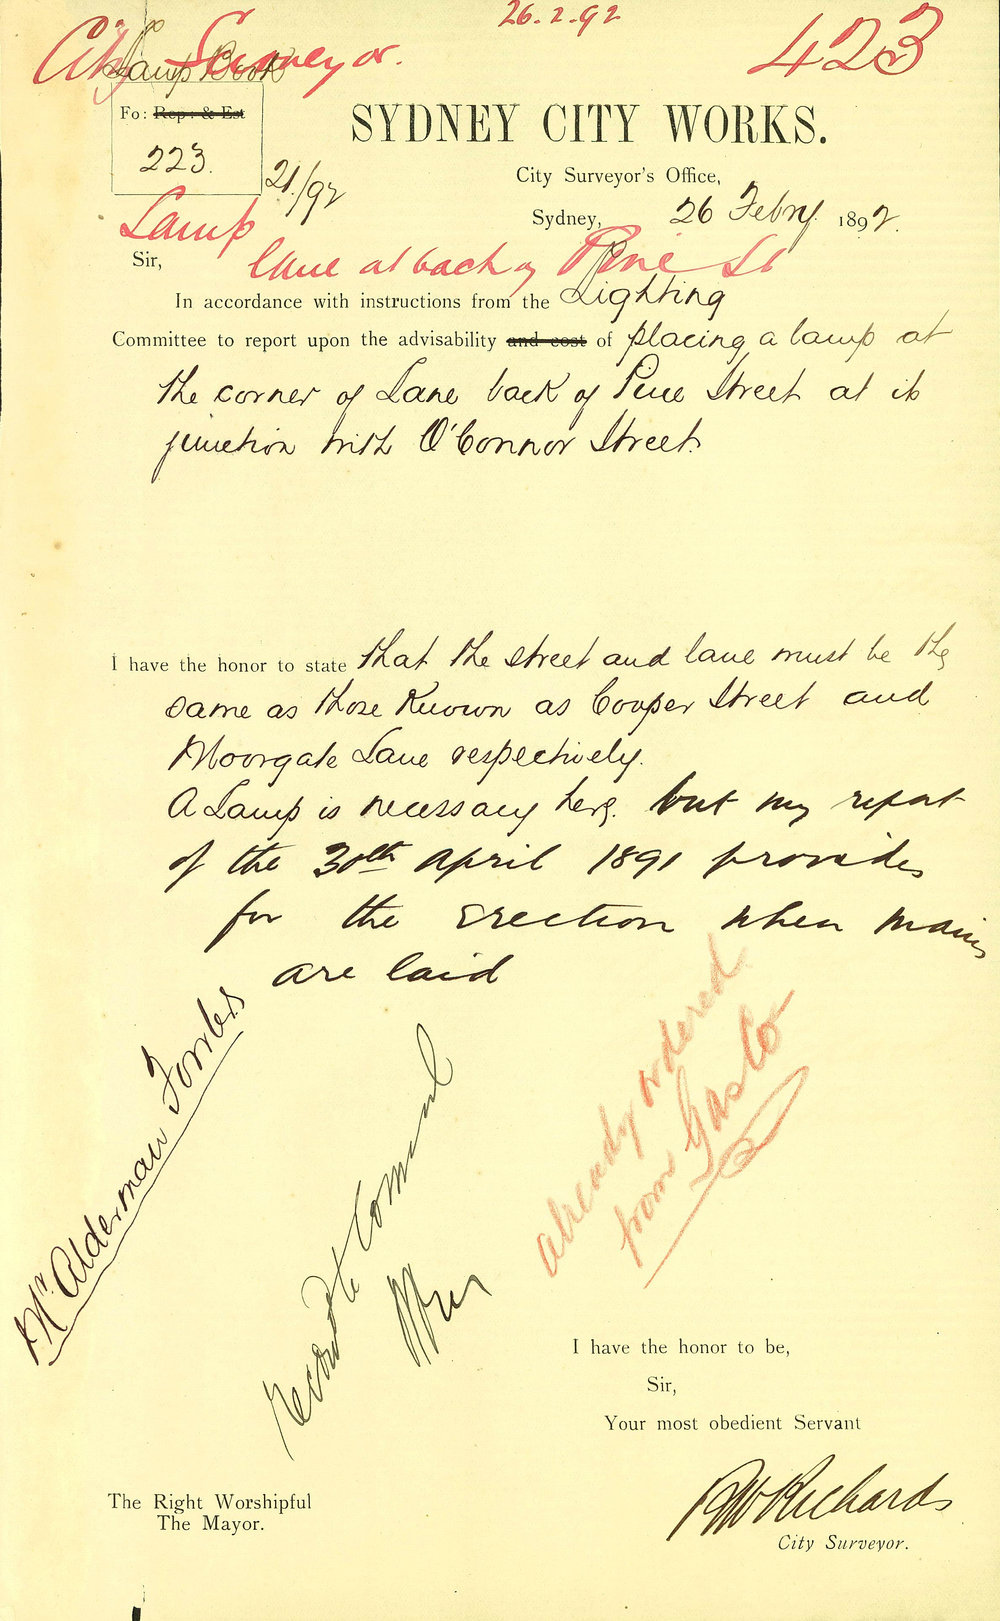 26.2.92
City Surveyor.
423
Lamp Book
Fo: Rep: & Est
223.
21/92
SYDNEY CITY WORKS.
City Surveyor's Office,
Sydney, 26 Febry. 1892.
Lamp
lane at back of Pine St
Sir,
In accordance with instructions from the Lighting
Committee to report upon the advisability and cost of placing a lamp at
the corner of Lane back of Pine Street at its
junction with O'Connor Street.
I have the honor to state that the street and lane must be the
same as those known as Cooper Street and
Moorgate Lane respectively.
A Lamp is necessary here. but my report
of the 30th April 1891 provides
for the erection when mains
are laid
Mr Alderman Forbes
already ordered
from Gas Co
I have the honor to be,
Sir,
Your most obedient Servant
RW Richards
City Surveyor.
The Right Worshipful
The Mayor.